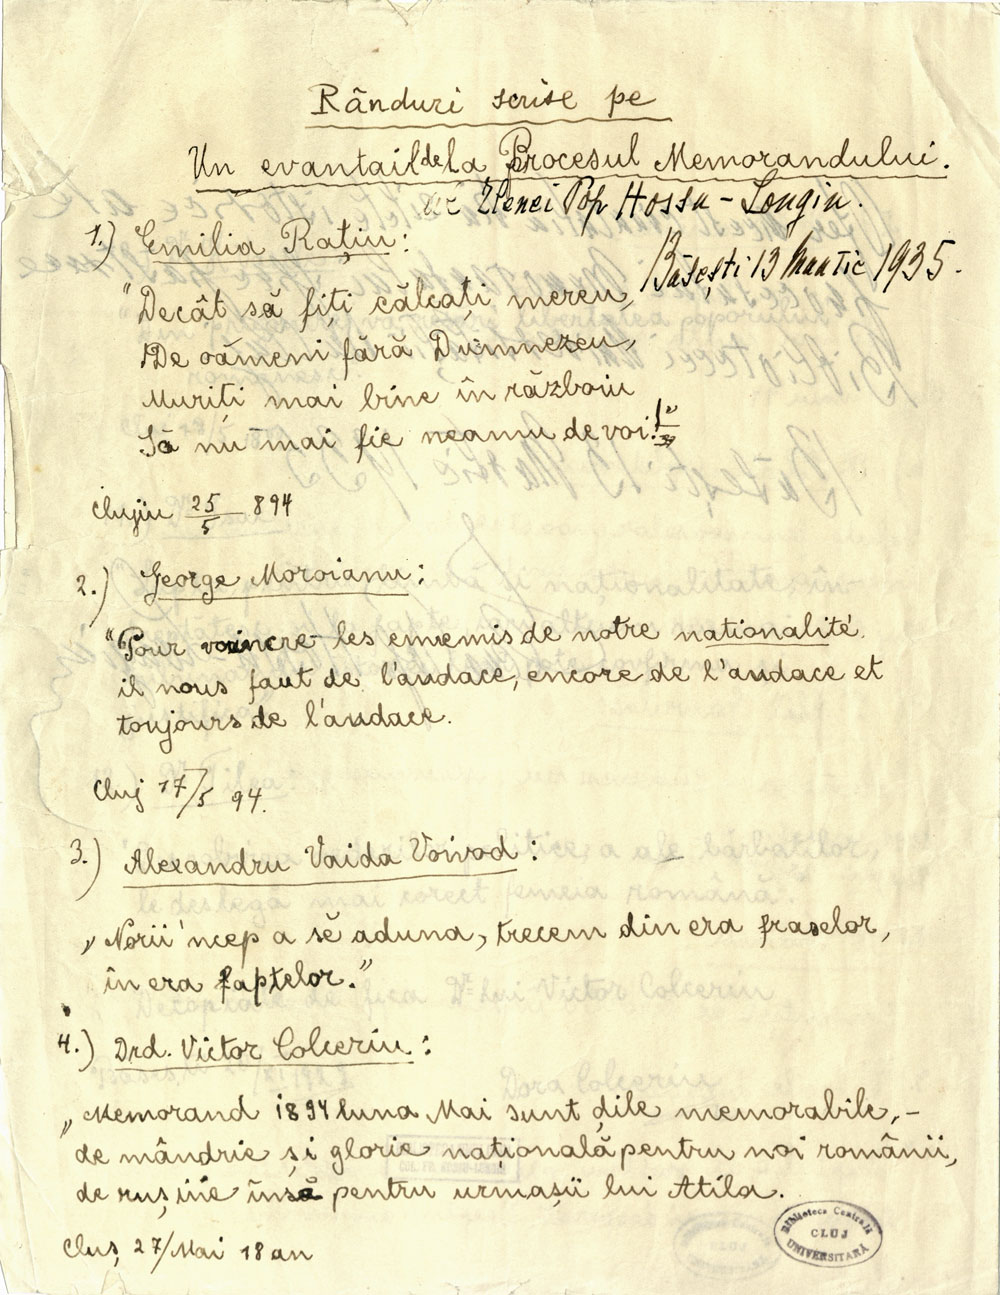 Rânduri scrise pe
Un evantail dela Procesul Memorandului.
Elenei Pop Hossu-Longin.
Băsești 13 Martie 1935.
1.) Emilia Rațiu:
"Decât să fiți călcați mereu,
De oameni fără Dumnezeu,
Muriți mai bine în războiu
Să nu mai fie neamu de voi!
Clujiu 25/5 894
2.) George Moroianu:
"Pour vaincre les ennemis de notre nationalité
il nous faut de l'audace, encore de l'audace et
toujours de l'audace.
Cluj 17/5 94.
3.) Alexandru Vaida Voivod:
„Norii 'ncep a sĕ aduna, trecem din era fraselor,
în era faptelor."
4.) Drd. Victor Colceriu:
„Memorand 1894 luna Mai sunt dile memorabile,-
de mândrie și glorie națională pentru noi românii,
de rușine însă pentru urmașii lui Atila.
Cluș, 27/Mai 18an
Biblioteca Centrală
CLUJ
UNIVERSITARĂ